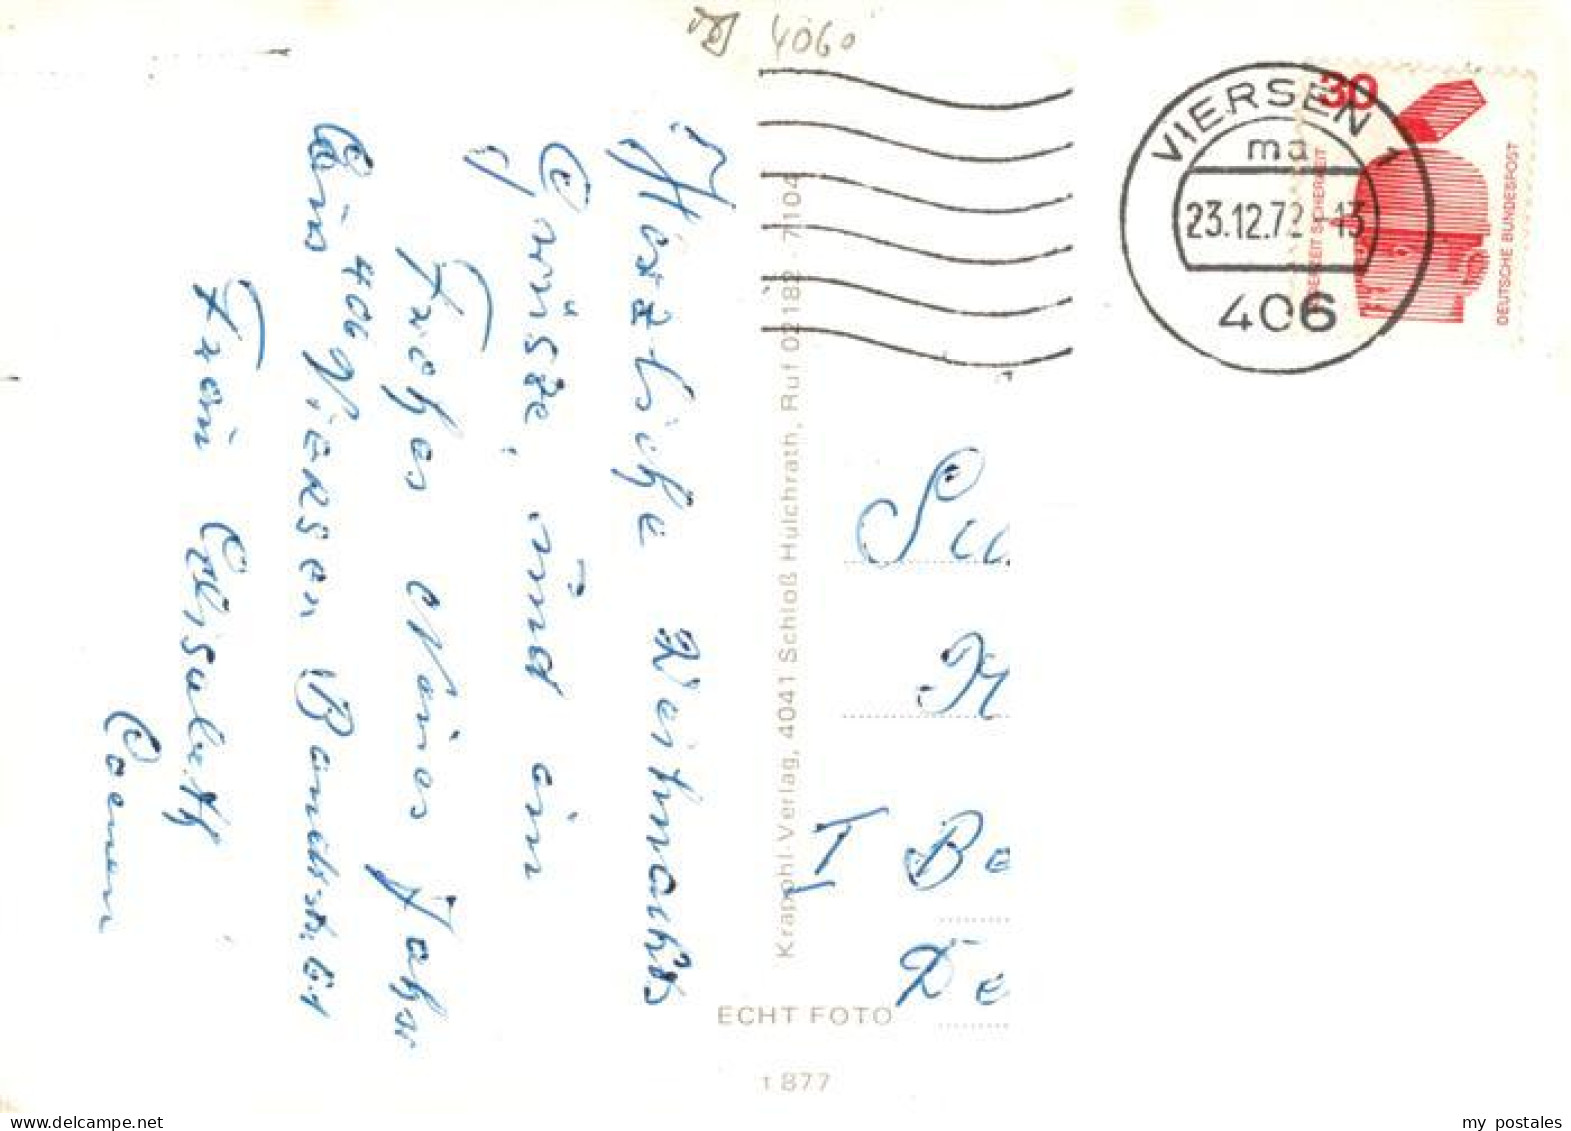 4060
Herzliche Weihnachts
Grüsse, und ein
Frohes Neues Jahr
aus 406 Viersen
Frau Elisabeth
Coenen
Krapohl-Verlag, 4041 Schloß Hülchrath, Ruf 02182-7104
ECHT FOTO
1877
VIERSEN 1
ma
23.12.72-13
406
30
JEDERZEIT SICHERHEIT
DEUTSCHE BUNDESPOST
Be
De
my postales